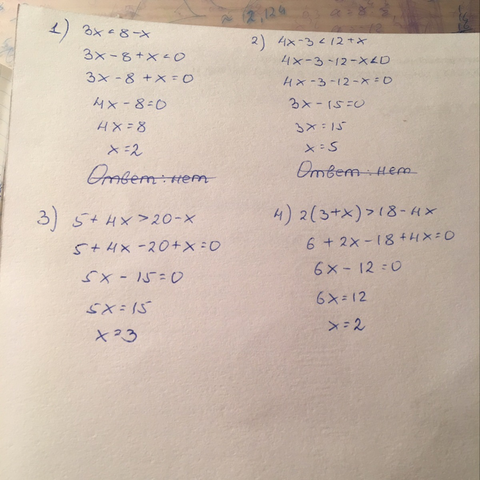 1) 3x < 8 - x
3x - 8 + x < 0
3x - 8 + x = 0
4x - 8 = 0
4x = 8
x = 2
Ответ: нет
2) 4x - 3 < 12 + x
4x - 3 - 12 - x < 0
4x - 3 - 12 - x = 0
3x - 15 = 0
3x = 15
x = 5
Ответ: нет
3) 5 + 4x > 20 - x
5 + 4x - 20 + x = 0
5x - 15 = 0
5x = 15
x = 3
4) 2(3 + x) > 18 - 4x
6 + 2x - 18 + 4x = 0
6x - 12 = 0
6x = 12
x = 2